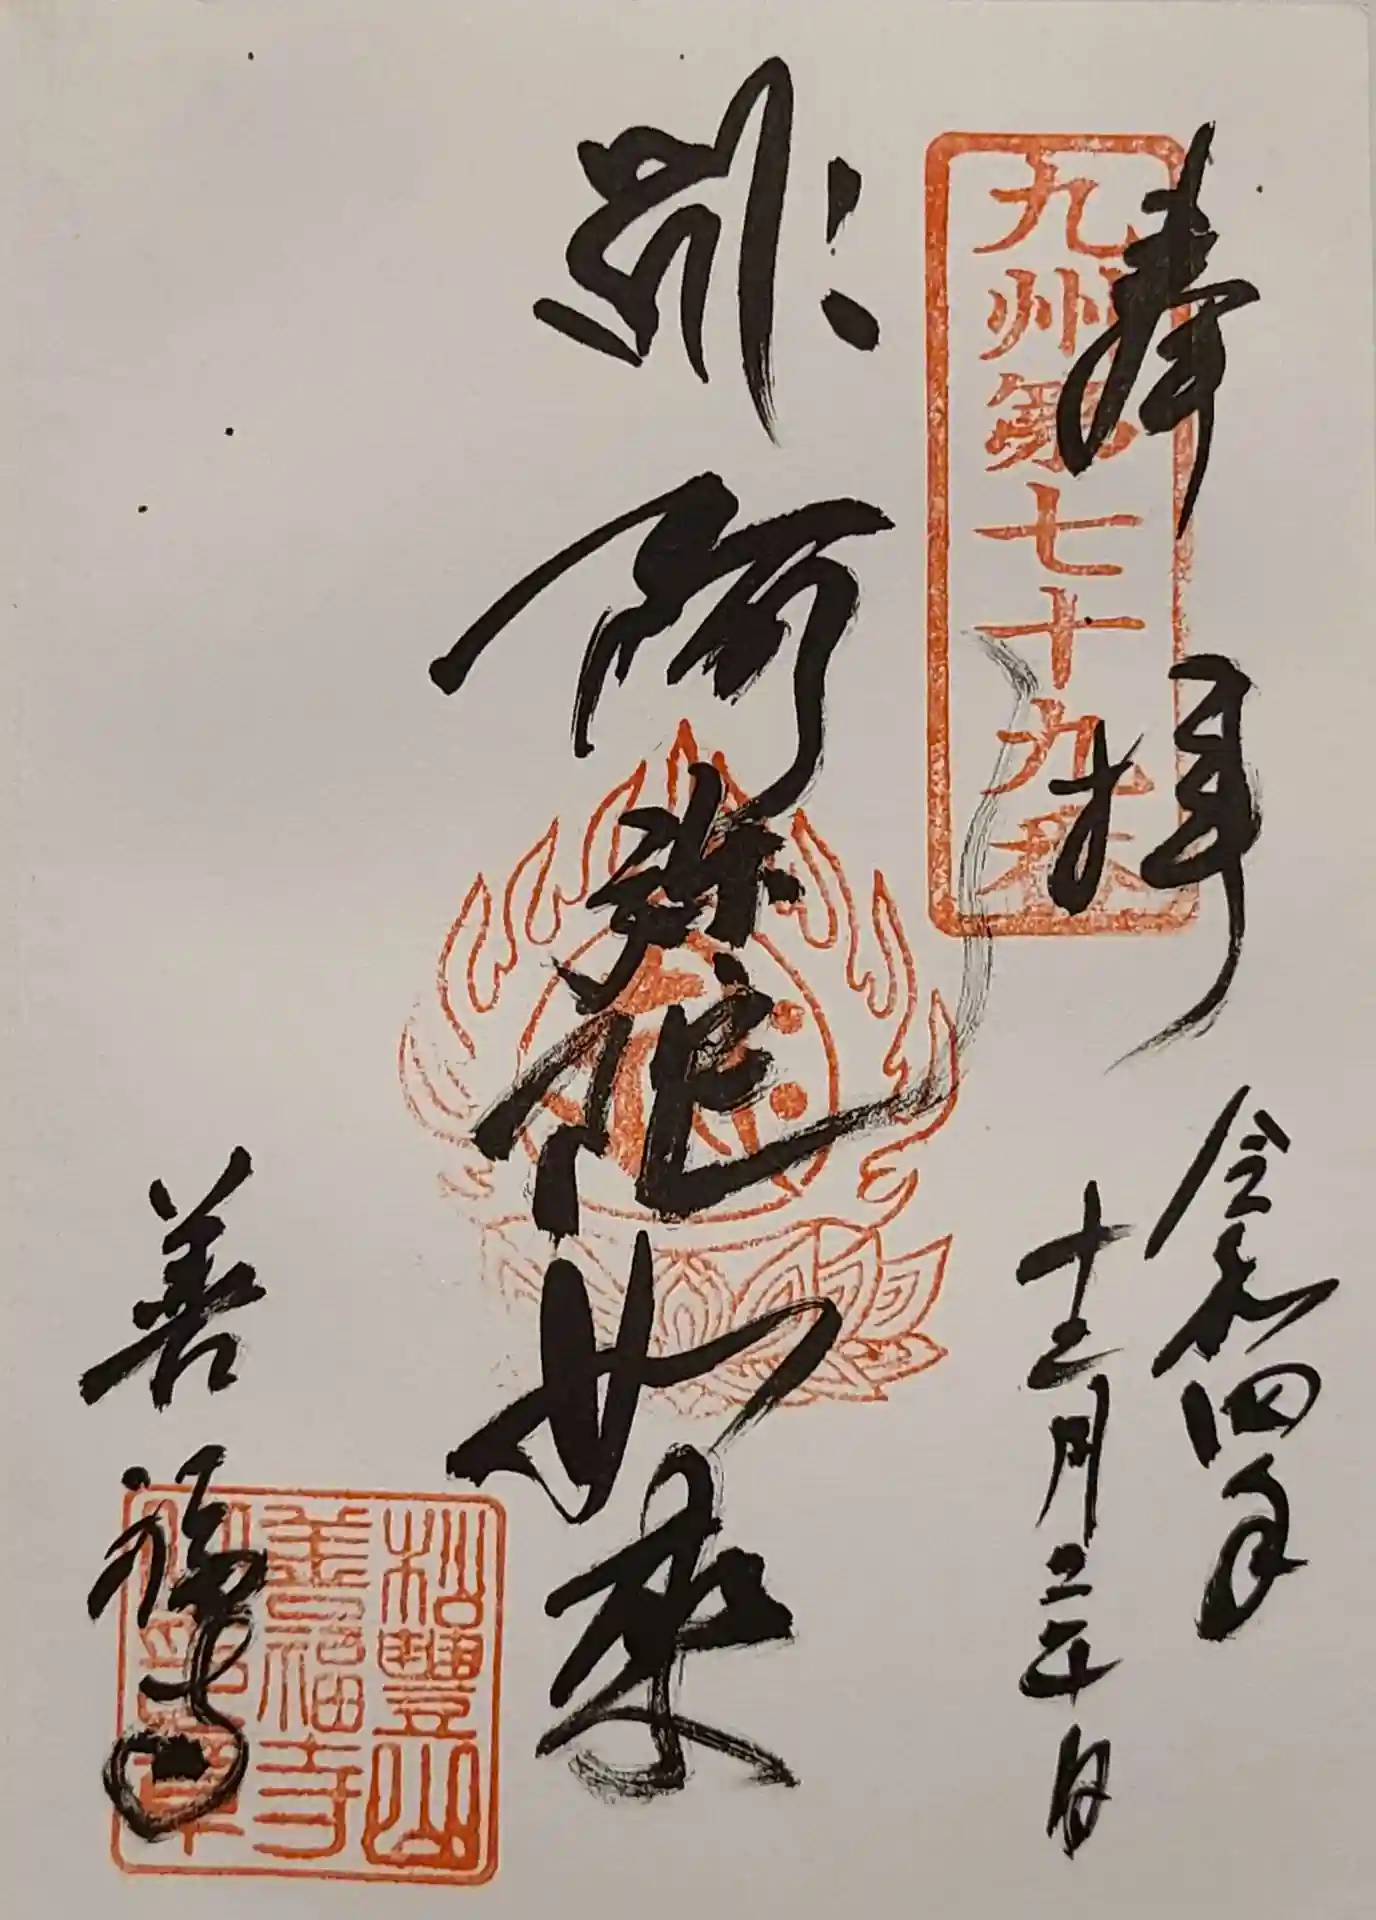 奉拝
九州第七十九番
令和四年
十二月二十日
ह्रीः
阿弥陀如来
善福寺
松豐山
善福寺